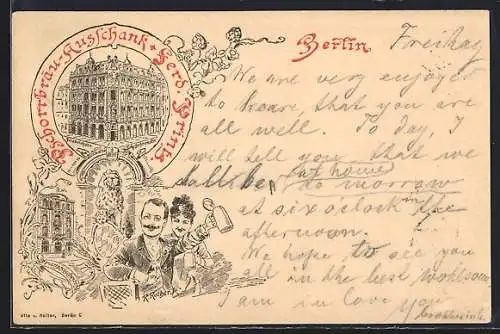 Pschorrbräu-Ausschank • Ferd. Prinks.
Berlin.
Freitag
We are very enjoyed
to heare, that you are
all well. To day, I
will tell you, that we
shall be at home
to morrow
at six o'clock in the
afternoon.
We hope to see you
all in the best
I am in love you